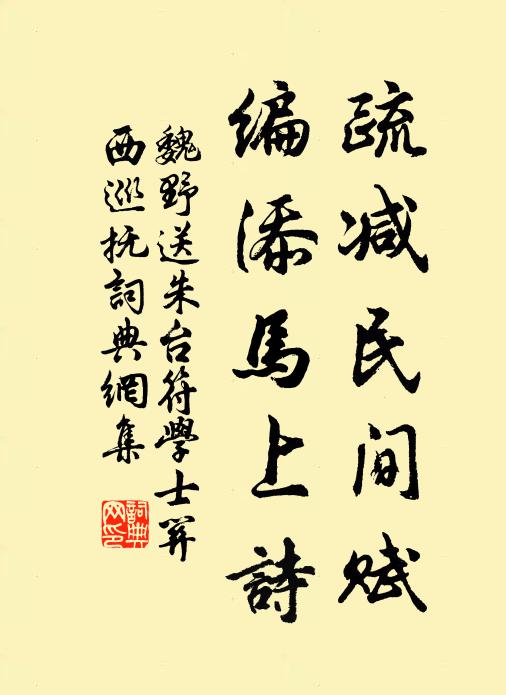 疏减民间赋
编添馬上詩
魏野送朱台符學士關
西巡抚詞典網集
詞典网印